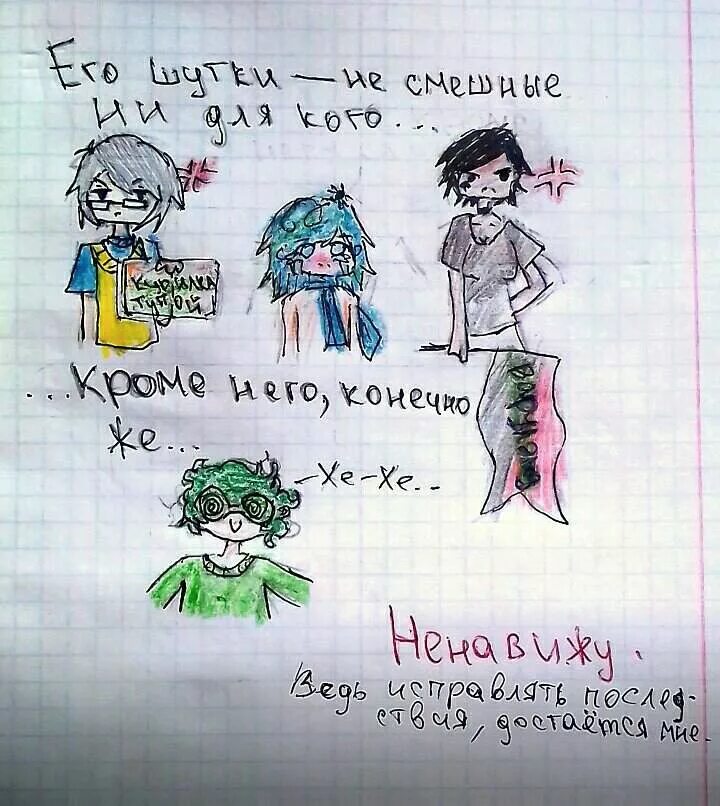 Его шутки — не смешные
ни для кого...
Курилка
тупой
...кроме него, конечно
же...
-Хе-Хе...
Ненавижу.
Ведь исправлять послед-
ствия, достаётся мне.